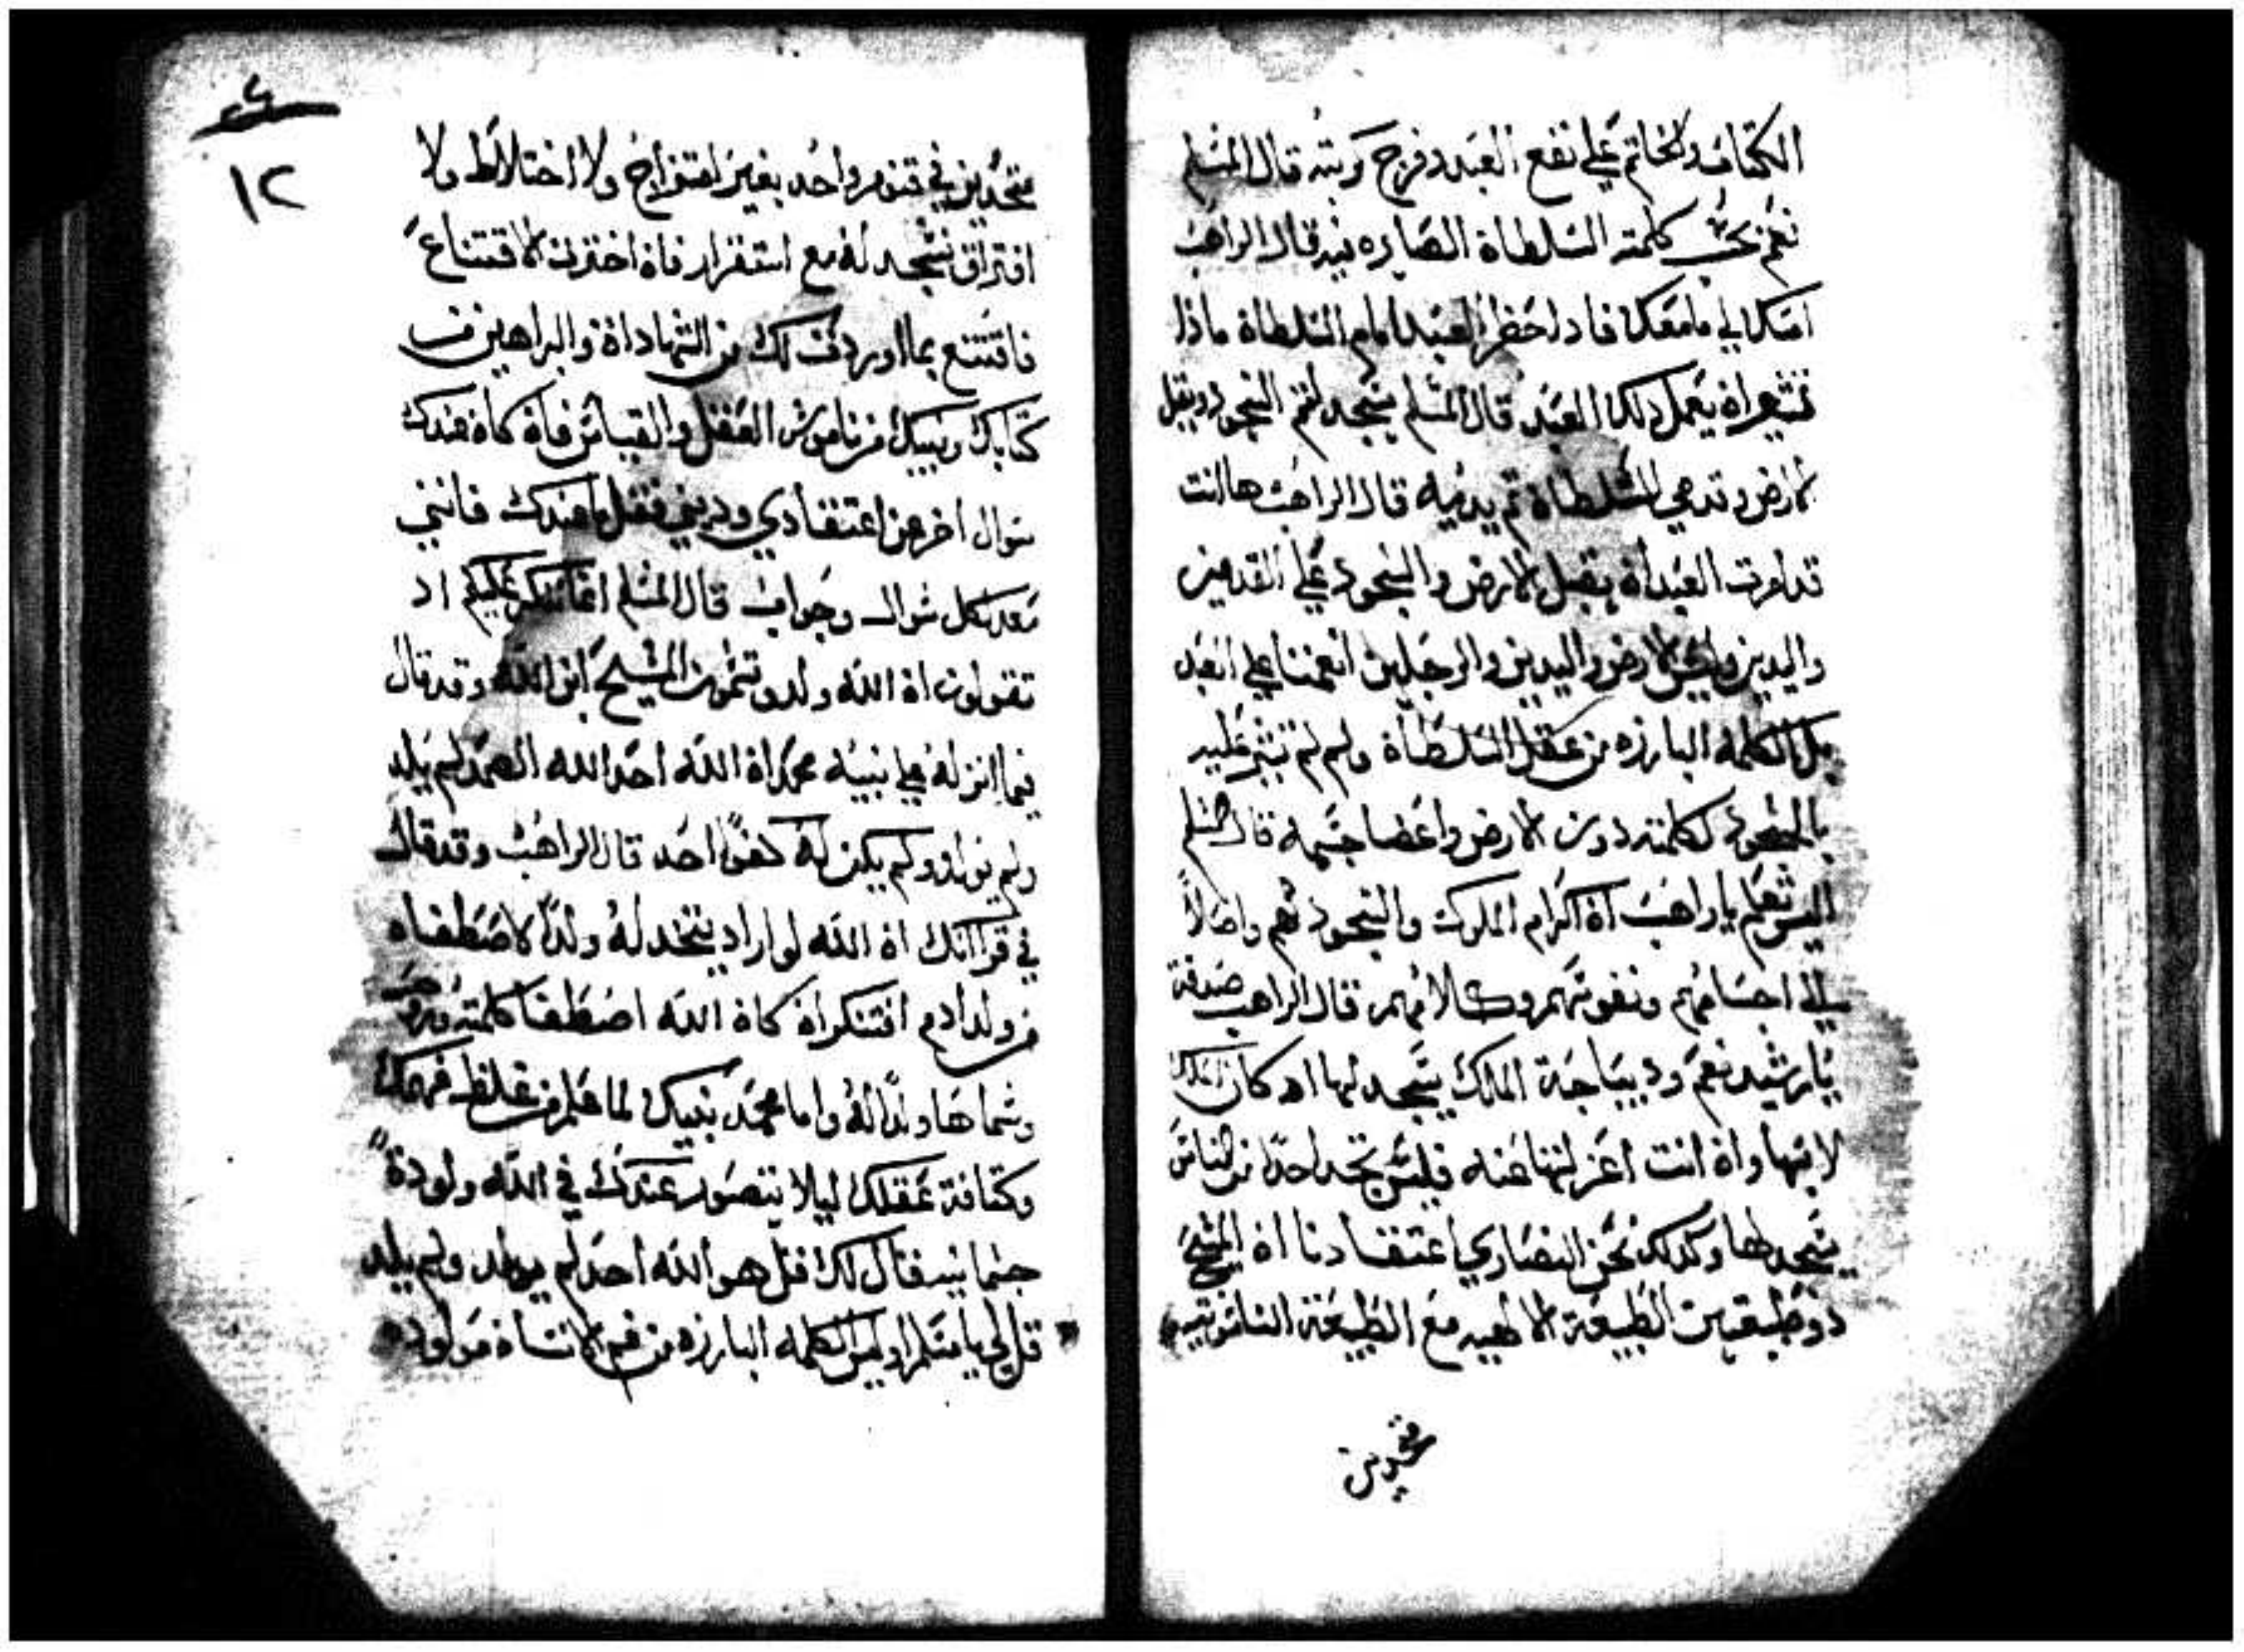 الكتاب والخاتم علي نفع العبد وفرج كربته قال المسلم
نعم بحسب كلمته السلطاة الصايره فيه قال الراهب
امسكا لي ما معكا فاذا حضر العبد امام السلطاة ماذا
تشير اة يعمل ذلك العبد قال المسلم يسجد لثم السجود ويقبل
الارض وتدعي السلطاة ثم يديه قال الراهب ها انت
قد امرت العبد اة يقبل الارض والسجود علي القدمين
واليدين وايش الارض واليدين والرجلين انعمنا علي العبد
بل الكلمه البارزه من عقل السلطاة ولم لم تشير عليه
بالسجود لكلمته دون الارض واعضا جسمه قال المسلم
اليس تعلم يا راهب اة اكرام الملوك والسجود لهم واصلاً
الي اجسامهم ونفوسهم وكلامهم قال الراهب صدقت
يا رشيد نعم وديباجة الملك يسجد لها اد كان الملك
لابسها واة انت اعزلتها عنه فليس تجد احدًا من الناس
يسجد لها وكذلك نحن النصاري اعتقادنا اة المسيح
ذو طبيعتين الطبيعة الالهيه مع الطبيعة الناسوتيه
متحدين
١٢
متحدين في قنوم واحد بغير امتزاج ولا اختلاط ولا
افتراق نسجد له مع استقرار فاة اخترت الاقتناع
فاقتنع بما اوردت لك من الشهاداة والبراهين من
كتابك ونبيك من ناموس العقل والقياس فاة كاة عندك
سوال اخر عن اعتقادي وديني فقل ما عندك فانني
معد لكل سوال وجواب قال المسلم انما ننكر عليكم اد
تقولون اة الله ولد وتسمون المسيح ابن الله وقد قال
فيما انزله علي نبيه محمد اة الله احد الله الصمد لم يلد
ولم يولد ولم يكن له كفوًا احد قال الراهب وقد قال
في قراانك اة الله لو اراد يتخد له ولدًا لاصطفاه
من ولد ادم افتنكر اة كاة الله اصطفا كلمته وروحه
وسماها ولدًا له واما محمد نبيك لما علم من غلظ فهمك
وكتافة عقلك ليلا يتصور عندك في الله ولودة
جسمانيه فقال لك قل هو الله احد لم يولد ولم يلد
قل لي يا مسلم اوليس الكلمه البارزه من فم الانساة مولوده